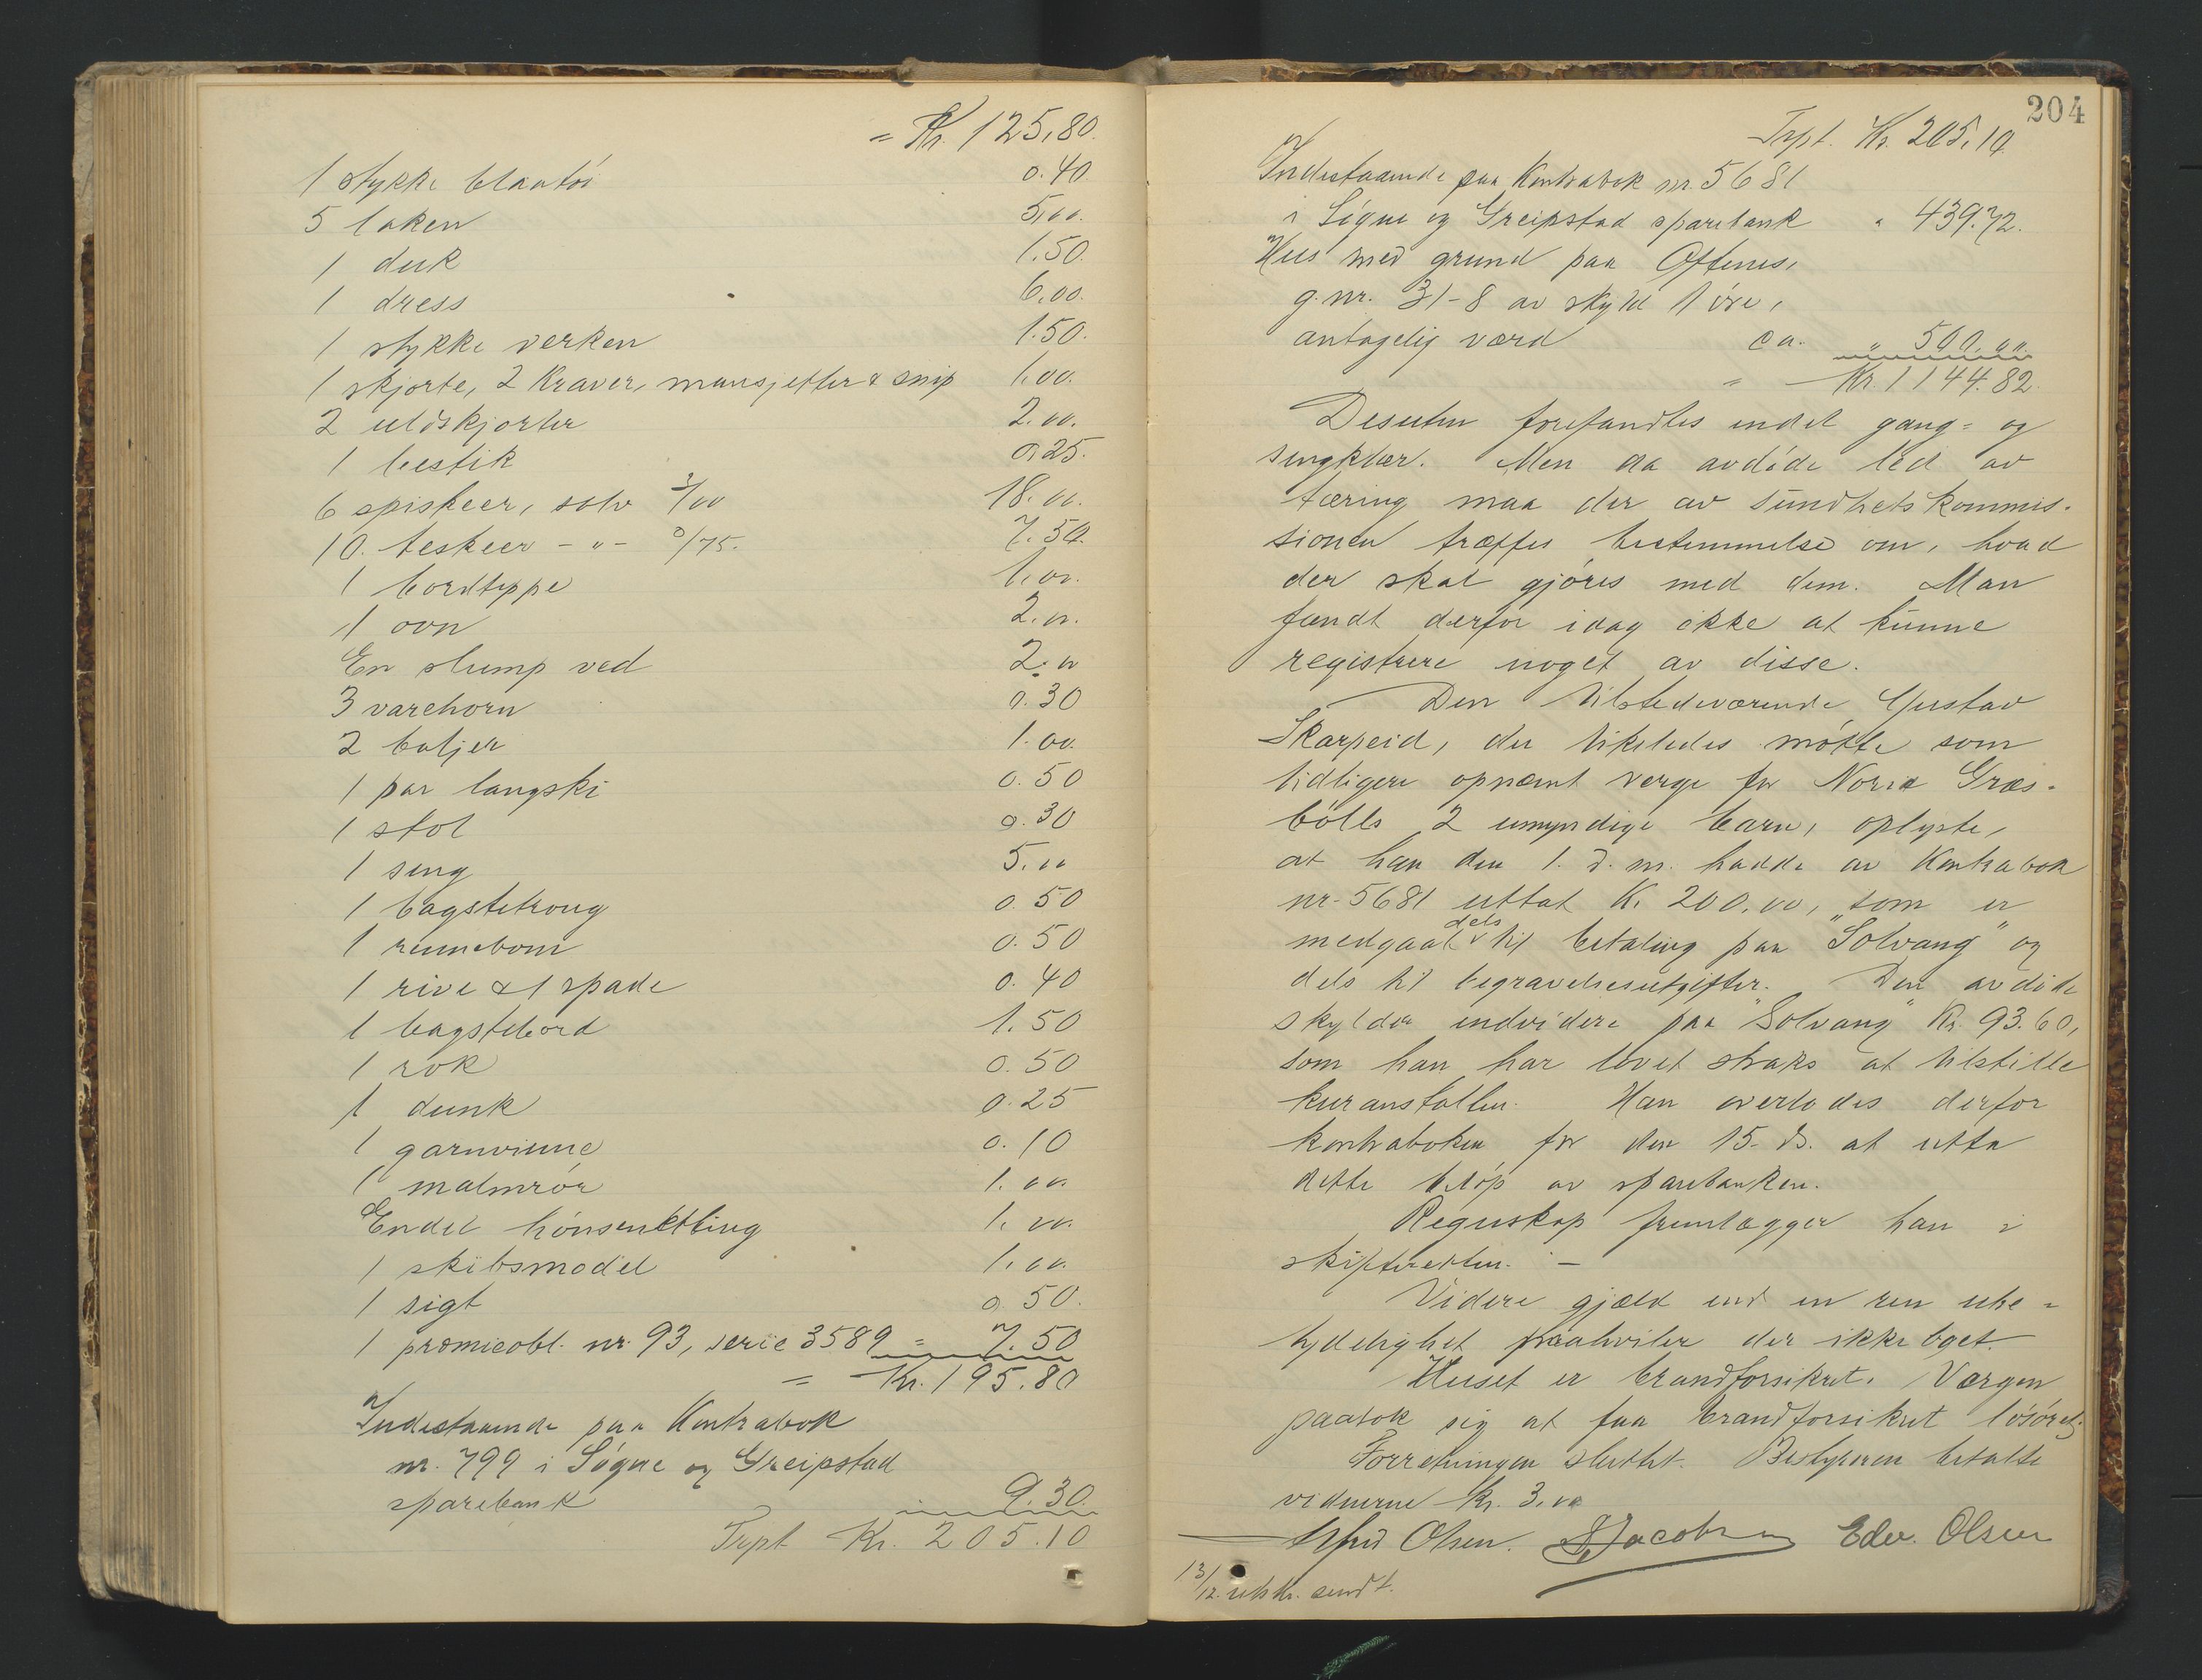 = Kr. 125,80.
1 stykke blaatöi 0.40
5 laken 5,00.
1 duk 1.50.
1 dress 6,00.
1 stykke verken 1.50.
1 skjorte, 2 kraver, mansjetter & snip 1,00.
2 uldskjorter 2.00.
1 bestik 0,25.
6 spiskeer, sölv 3/00 18.00.
10. teskeer - " - 0/75. 7.50.
1 bordteppe 1,00.
1 ovn 2.00.
En slump ved 2.00
3 varehorn 0.30
2 baljer 1.00.
1 par langski 0.50
1 stol 0.30
1 seng 5.00
1 bagstetroug 0.50
1 rennebom 0.50
1 rive & 1 spade 0.40
1 bagstebord 1.50
1 rok 0.50
1 dunk 0.25
1 garnvinne 0.10
1 malmrör 1.00.
Endel hönsenetting 1.00.
1 skibsmodel 1.00.
1 sigt 0.50.
1 premieobl. nr. 93, serie 3589 = 7.50
= Kr. 195.80
Indestaaende paa Kontrabok
nr. 799 i Sögne og Greipstad
sparebank 9.30.
Trpt Kr. 205.10
204
Trpt. Kr. 205,10
Indestaaende paa Kontrabok nr. 5681
i Sögne og Greipstad sparebank " 439.72.
Hus med grund paa Ofternes,
g.nr. 31-8 av skyld 1 öre,
antagelig værd ca. " 500,00.
= Kr. 1144.82.
Desuten forefandtes endel gang= og
sengklær. Men da avdöde led av
tæring maa der av sundhetskommis-
sionen træffes bestemmelse om, hvad
der skal gjöres med dem. Man
fandt derfor idag ikke at kunne
registrere noget av disse.
Den tilstedeværende Gustav
Skarpeid, der likeledes mötte som
tidligere opnævnt verge for Noria Græs-
bölls 2 umyndige barn, oplyste,
at han den 1. d.m. hadde av Kontrabok
nr. 5681 uttat Kr. 200.00, som er
medgaat dels til betaling paa "Solvang" og
dels til begravelsesutgifter. Den avdöde
skylder endvidere paa "Solvang" Kr. 93.60,
som han har lovet straks at tilstille
kuranstalten. Han overlodes derfor
kontraboken for den 15. ds. at utta
dette belöp av sparebanken.
Regnskap fremlægger han i
skifteretten. -
Videre gjæld end en ren ube=
tydelighet paahviler der ikke boet.
Huset er brandforsikret. Vergen
paatok sig at faa brandforsikret lösöret.
Forretningen sluttet. Bestyreren betalte
vidnerne kr. 3.00
Alfred Olsen. Jacobsen Edv. Olsen
13/12. utskr. sendt.